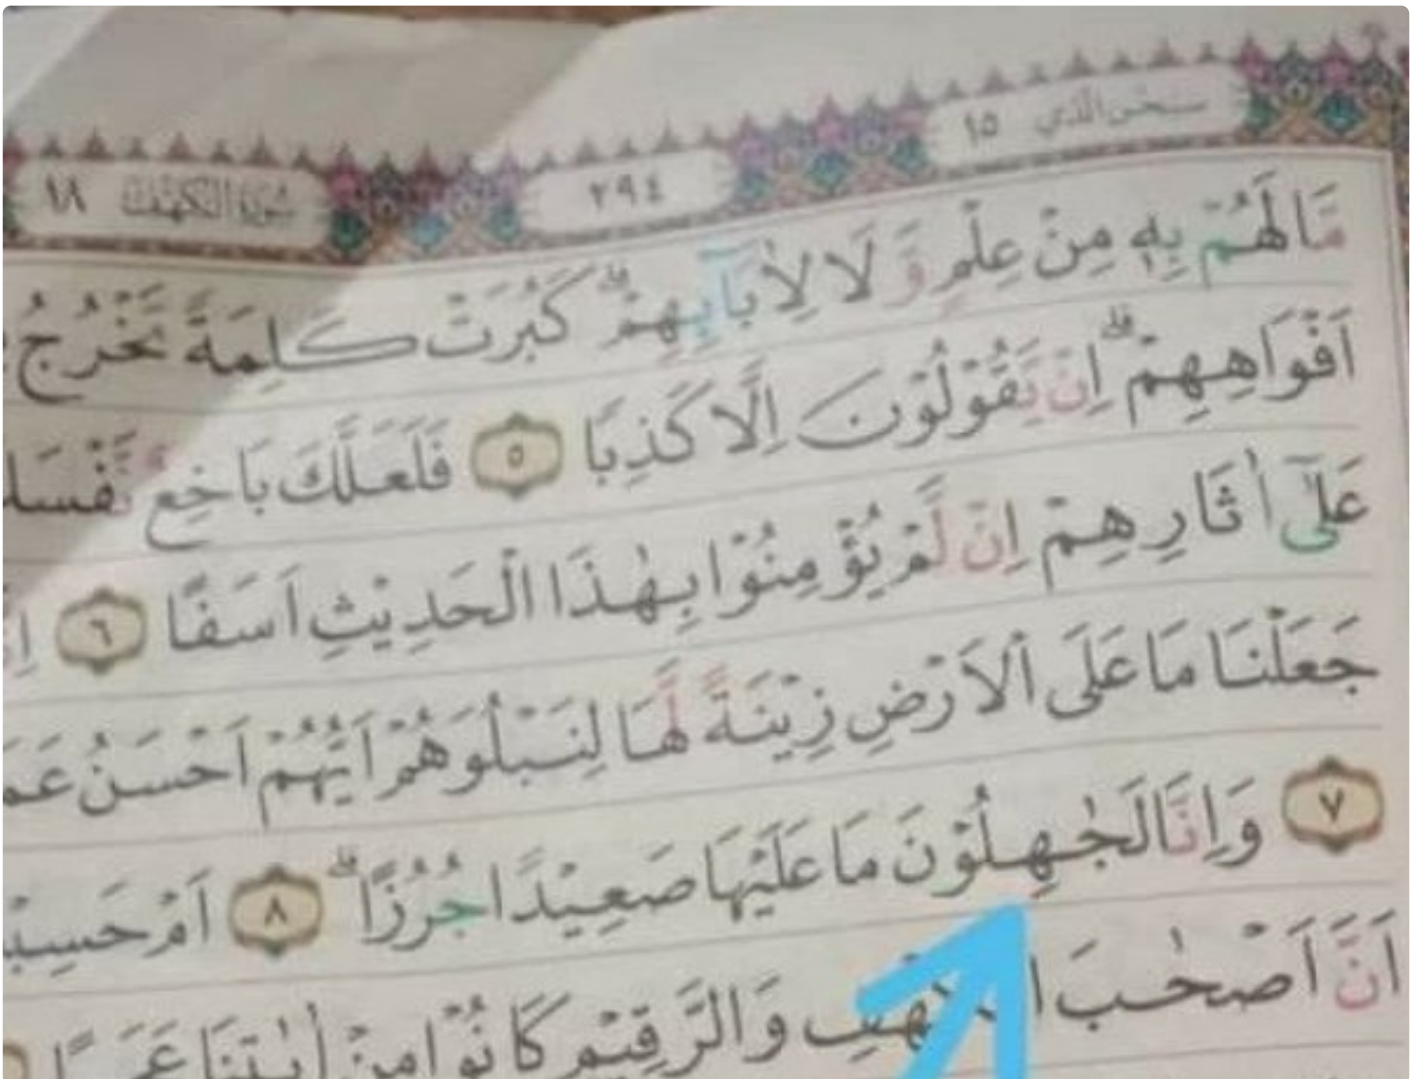 سبحن الذي ١٥
٢٩٤
سورة الكهف ١٨
مَّا لَهُمْ بِهٖ مِنْ عِلْمٍ وَّلَا لِاٰبَآئِهِمْۗ كَبُرَتْ كَلِمَةً تَخْرُجُ
اَفْوَاهِهِمْۗ اِنْ يَّقُوْلُوْنَ اِلَّا كَذِبًا ٥ فَلَعَلَّكَ بَاخِعٌ
عَلٰٓى اٰثَارِهِمْ اِنْ لَّمْ يُؤْمِنُوْا بِهٰذَا الْحَدِيْثِ اَسَفًا ٦
جَعَلْنَا مَا عَلَى الْاَرْضِ زِيْنَةً لَّهَا لِنَبْلُوَهُمْ اَيُّهُمْ اَحْسَنُ
٧ وَاِنَّا لَجٰهِلُوْنَ مَا عَلَيْهَا صَعِيْدًا جُرُزًاۗ ٨ اَمْ
اَنَّ اَصْحٰبَ وَالرَّقِيْمِ كَانُوْا مِنْ اٰيٰتِنَا